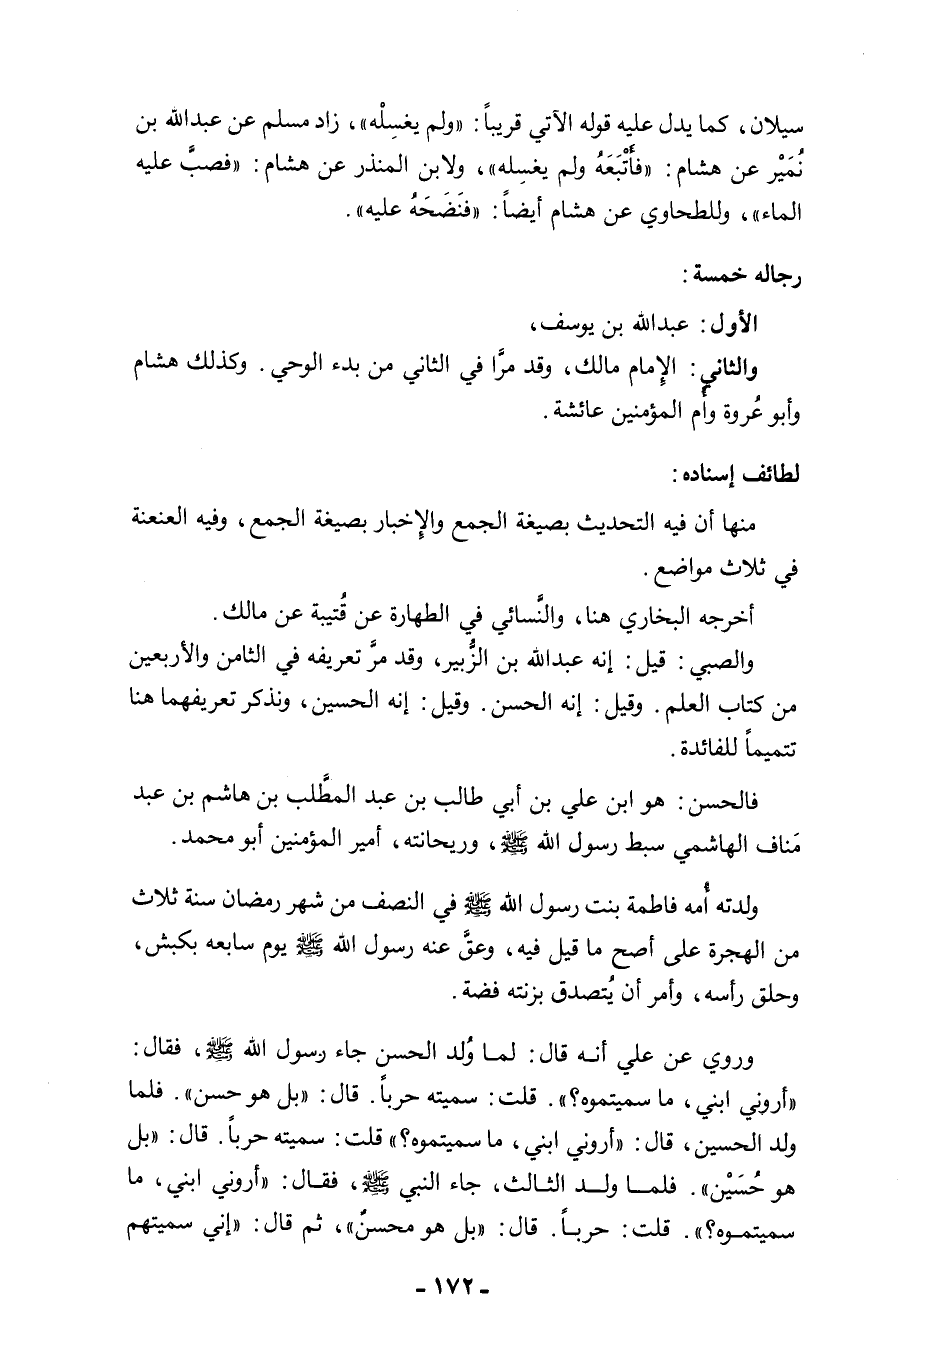 سيلان، كما يدل عليه قوله الآتي قريباً: «ولم يغسِلْه»، زاد مسلم عن عبدالله بن
نُمَيْر عن هشام: «فأَتْبَعَهُ ولم يغسِله»، ولابن المنذر عن هشام: «فصبَّ عليه
الماء»، وللطحاوي عن هشام أيضاً: «فنَضَحَهُ عليه».
رجاله خمسة:
الأول: عبدالله بن يوسف،
والثاني: الإِمام مالك، وقد مرَّا في الثاني من بدء الوحي. وكذلك هشام
وأبو عُروة وأُم المؤمنين عائشة.
لطائف إسناده:
منها أن فيه التحديث بصيغة الجمع والإِخبار بصيغة الجمع، وفيه العنعنة
في ثلاث مواضع.
أخرجه البخاري هنا، والنَّسائي في الطهارة عن قُتيبة عن مالك.
والصبي: قيل: إنه عبدالله بن الزُّبير، وقد مرَّ تعريفه في الثامن والأربعين
من كتاب العلم. وقيل: إنه الحسن. وقيل: إنه الحسين، ونذكر تعريفهما هنا
تتميماً للفائدة.
فالحسن: هو ابن علي بن أبي طالب بن عبد المطَّلب بن هاشم بن عبد
مَناف الهاشمي سبط رسول الله ﷺ، وريحانته، أمير المؤمنين أبو محمد.
ولدته أُمه فاطمة بنت رسول الله ﷺ في النصف من شهر رمضان سنة ثلاث
من الهجرة على أصح ما قيل فيه، وعقَّ عنه رسول الله ﷺ يوم سابعه بكبش،
وحلق رأسه، وأمر أن يُتصدق بزنته فضة.
وروي عن علي أنه قال: لما وُلد الحسن جاء رسول الله ﷺ، فقال:
«أروني ابني، ما سميتموه؟». قلت: سميته حرباً. قال: «بل هو حسن». فلما
ولد الحسين، قال: «أروني ابني، ما سميتموه؟» قلت: سميته حرباً. قال: «بل
هو حُسَيْن». فلما ولد الثالث، جاء النبي ﷺ، فقال: «أروني ابني، ما
سميتموه؟». قلت: حرباً. قال: «بل هو محسنٌ»، ثم قال: «إني سميتهم
- ١٧٢ -